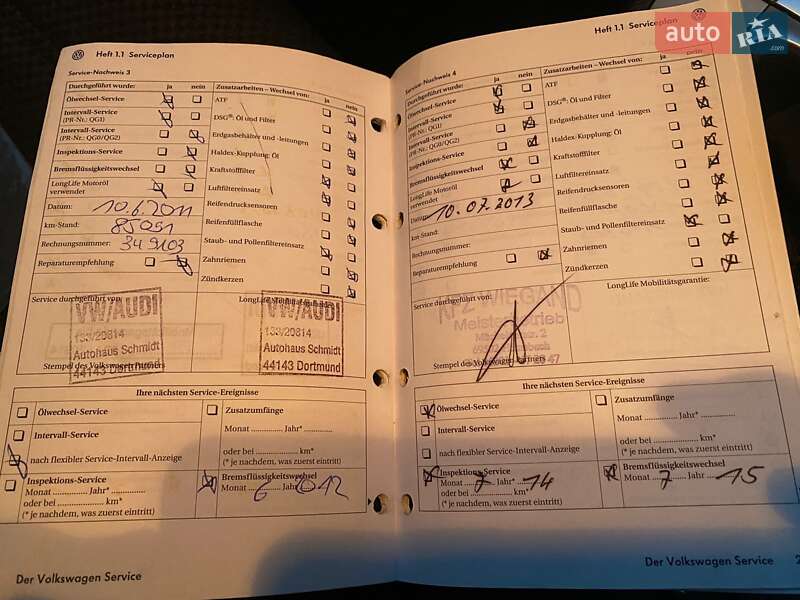 Heft 1.1 Serviceplan
Service-Nachweis 3
Durchgeführt wurde: ja nein
Ölwechsel-Service
Intervall-Service
(PR-Nr.: QG1)
Intervall-Service
(PR-Nr.: QG0/QG2)
Inspektions-Service
Bremsflüssigkeitswechsel
LongLife Motoröl
verwendet
Datum: 10.6.2011
km-Stand: 85051
Rechnungsnummer: 349103
Reparaturempfehlung
Zusatzarbeiten – Wechsel von: ja nein
ATF
DSG®: Öl und Filter
Erdgasbehälter und -leitungen
Haldex-Kupplung: Öl
Kraftstofffilter
Luftfiltereinsatz
Reifendrucksensoren
Reifenfüllflasche
Staub- und Pollenfiltereinsatz
Zahnriemen
Zündkerzen
Service durchgeführt von:
VW/AUDI
133/20814
Autohaus Schmidt
44143 Dortmund
Stempel des Volkswagen Partners
VW/AUDI
133/20814
Autohaus Schmidt
44143 Dortmund
Ihre nächsten Service-Ereignisse
Ölwechsel-Service
Intervall-Service
nach flexibler Service-Intervall-Anzeige
Inspektions-Service
Monat ............ Jahr* ............
oder bei ............ km*
(* je nachdem, was zuerst eintritt)
Zusatzumfänge
Monat ............ Jahr* ............
oder bei ............ km*
(* je nachdem, was zuerst eintritt)
Bremsflüssigkeitswechsel
Monat 6 Jahr 2012
Der Volkswagen Service
Heft 1.1 Serviceplan
Service-Nachweis 4
Durchgeführt wurde: ja nein
Ölwechsel-Service
Intervall-Service
(PR-Nr.: QG1)
Intervall-Service
(PR-Nr.: QG0/QG2)
Inspektions-Service
Bremsflüssigkeitswechsel
LongLife Motoröl
verwendet
Datum: 10.07.2013
km-Stand:
Rechnungsnummer:
Reparaturempfehlung
Zusatzarbeiten – Wechsel von: ja nein
ATF
DSG®: Öl und Filter
Erdgasbehälter und -leitungen
Haldex-Kupplung: Öl
Kraftstofffilter
Luftfiltereinsatz
Reifendrucksensoren
Reifenfüllflasche
Staub- und Pollenfiltereinsatz
Zahnriemen
Zündkerzen
Service durchgeführt von:
LongLife Mobilitätsgarantie:
KFZ-WIEGAND
Meisterbetrieb
Stempel des Volkswagen Partners
Ihre nächsten Service-Ereignisse
Ölwechsel-Service
Intervall-Service
nach flexibler Service-Intervall-Anzeige
Inspektions-Service
Monat 7 Jahr* 14
oder bei ............ km*
(* je nachdem, was zuerst eintritt)
Zusatzumfänge
Monat ............ Jahr* ............
oder bei ............ km*
(* je nachdem, was zuerst eintritt)
Bremsflüssigkeitswechsel
Monat 7 Jahr 15
Der Volkswagen Service
auto RIA .com